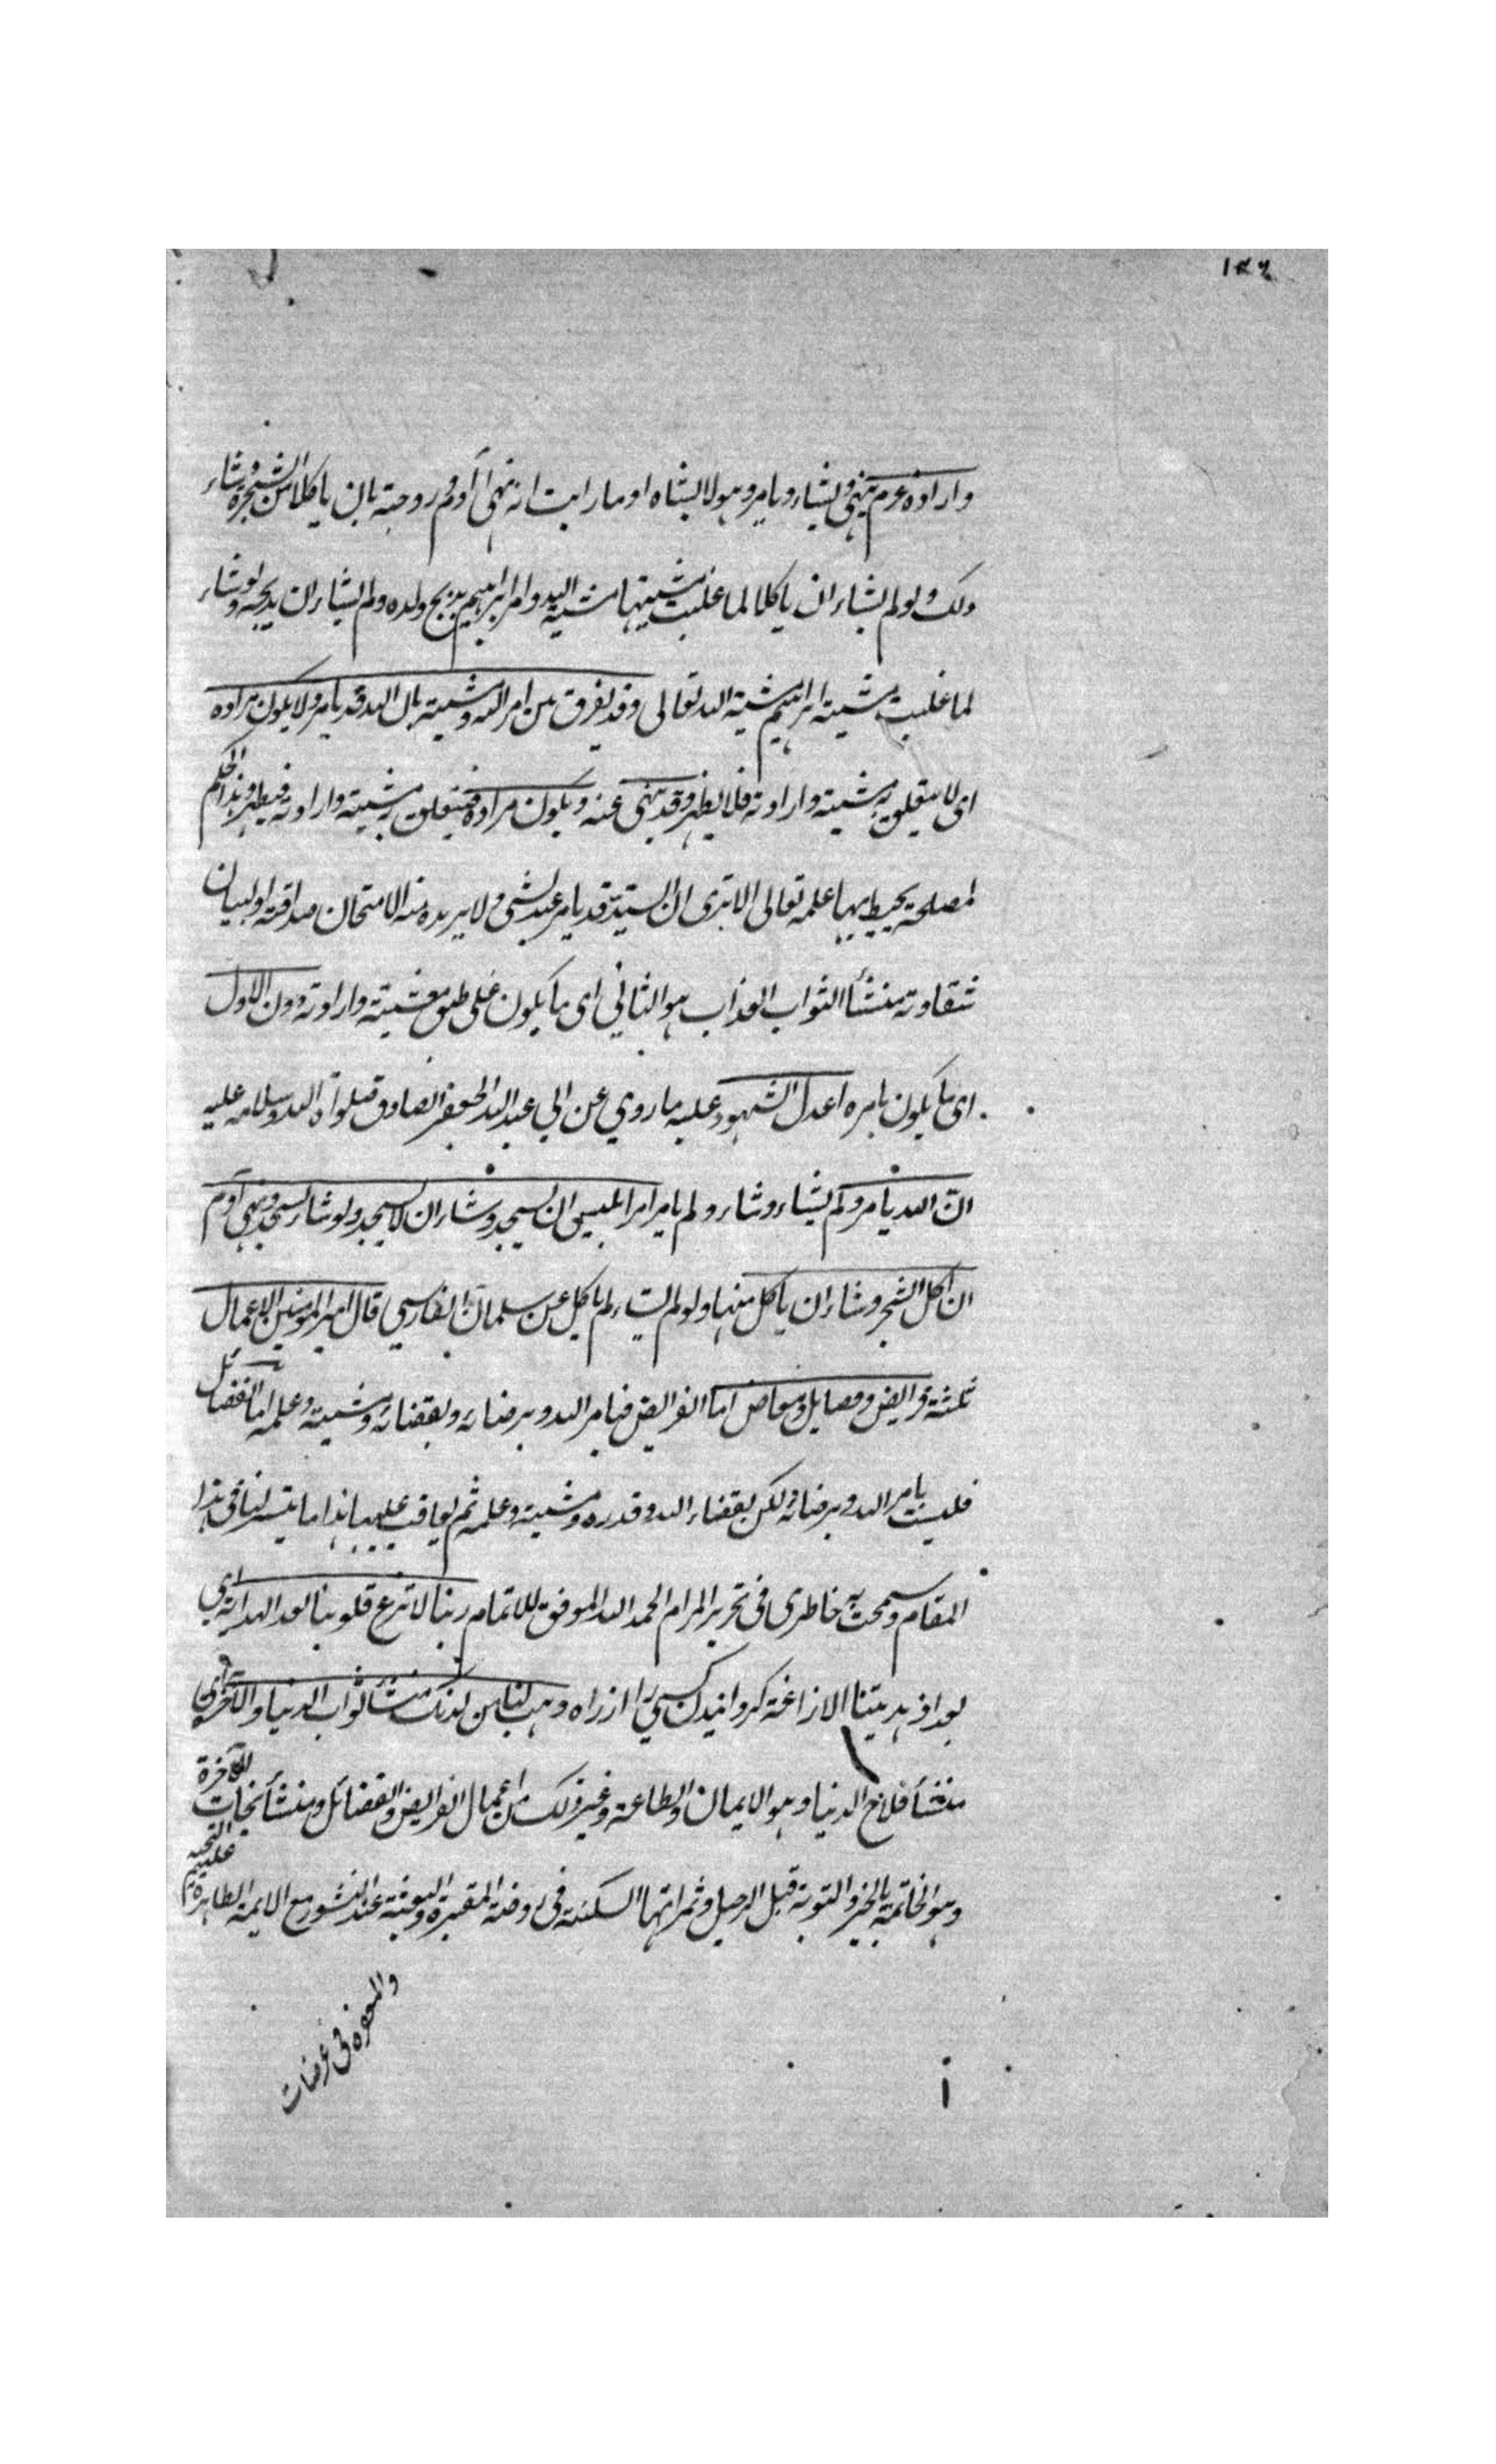 ١٤٦
وارادة عزم ينهى ويشاء ويامر وهو لا يشاء او ما رايت انه نهى آدم وزوجته بان ياكلا من الشجرة وشاء
ذلك ولو لم يشاء ان ياكلا لما غلبت مشيتهما مشية الله وامر ابراهيم بذبح ولده ولم يشاء ان يذبحه ولو شاء
لما غلبت مشية ابراهيم مشية الله تعالى وقد يفرق بين امر الله ومشيته بان الله قد يامر ولا يكون مراده
اى لا يتعلق به مشيته وارادته فلا يظهر وقد ينهى عنه ويكون مراده فيتعلق به مشيته وارادته فيظهر وهذا الحكم
لمصلحة يحيط بها علمه تعالى الا ترى ان السيد قد يامر عبده بشئ ولا يريده منه الامتحان صداقته او لبيان
شقاوته منشأ الثواب العذاب هو الثاني اى ما يكون على طبق مشيته وارادته دون الاول
اى ما يكون بامره اعدل الشهود عليه ما روي عن ابي عبد الله الجعفر الصادق صلوات الله وسلامه عليه
انّ الله يامر ولم يشاء وشاء ولم يامر امر ابليس ان يسجد وشاء ان لا يسجد ولو شاء لسجد ونهى آدم
ان اكل الشجر وشاء ان ياكل منها ولو لم يشاء لم ياكل عن سلمان الفارسي قال امير المومنين الاعمال
ثلثة فرايض وفضايل ومعاصى اما الفرايض فبامر الله وبرضائه وبقضائه ومشيته وعلمه اما الفضائل
فليست بامر الله وبرضائه ولكن بقضاء الله وقدره ومشيته وعلمه ثم يعاقب عليها هذا ما يتسر لنا فى هذا
المقام وسمحت به خاطرى فى تحرير المرام الحمد الله الموفق للاتمام ربنا لا تزغ قلوبنا بعد الهداية اي
بعد اذ هديتنا الازاغة كردانيدن كسي را از راه وهب لنا من لدنك منشأ ثواب الدنيا والاخرة اى
منشأ فلاح الدنيا وهو الايمان والطاعة وغير ذلك من اعمال الفرايض والفضائل ومنشأ نجات الآخرة
وهو الخاتمة بالخير والتوبة قبل الرحيل وثمراتها السكنة فى روضة المقبرة والبعثة عند النشور مع الايمة الطاهرة عليهم التحية
والمغفرة فى عرضات